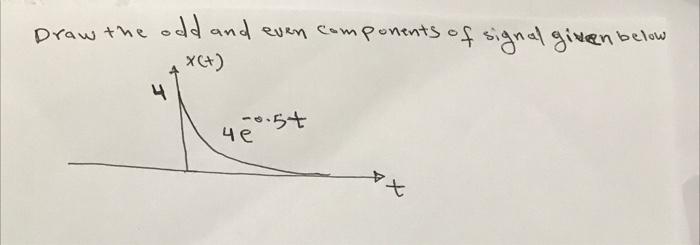 Draw the odd and even components of signal given below
x(t)
4
4e^-0.5t
t